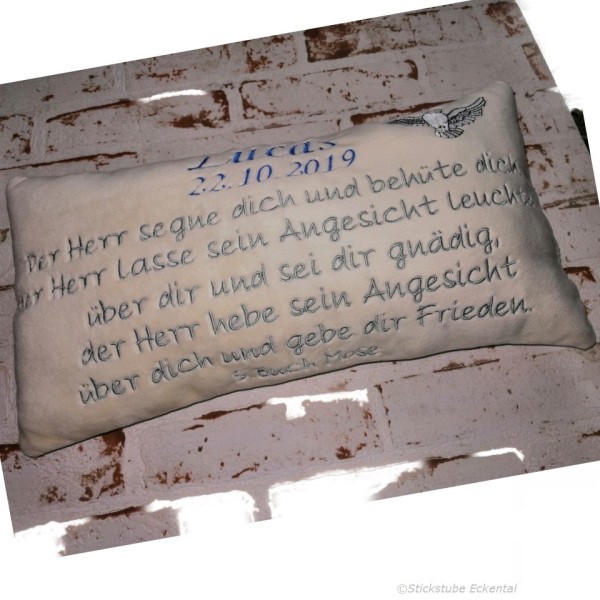 Lucas
22.10.2019
Der Herr segne dich und behüte dich,
der Herr lasse sein Angesicht leuchten
über dir und sei dir gnädig,
der Herr hebe sein Angesicht
über dich und gebe dir Frieden.
Buch Mose
©Stickstube Eckental